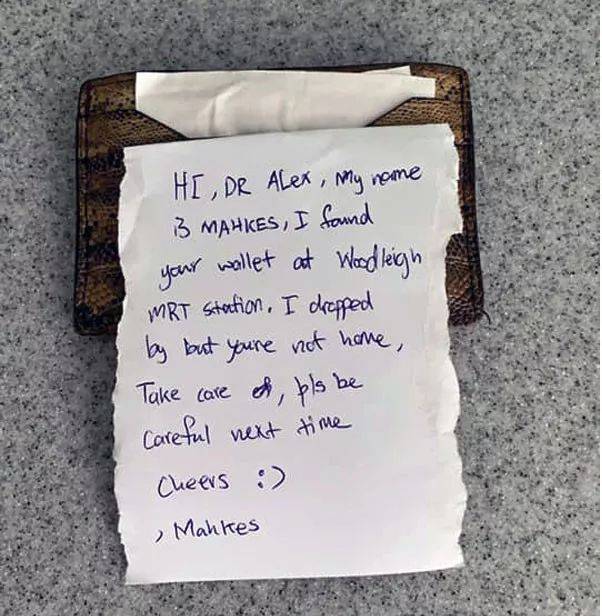 HI, DR ALex, My name
is MAHKES, I found
your wallet at Woodleigh
MRT station. I dropped
by but youre not home,
Take care, pls be
Careful next time
Cheers :)
, Mahkes